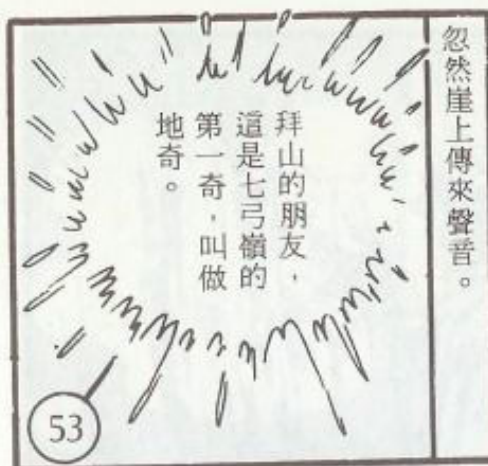 忽然崖上傳來聲音。
拜山的朋友，
這是七弓嶺的
第一奇，叫做
地奇。
53